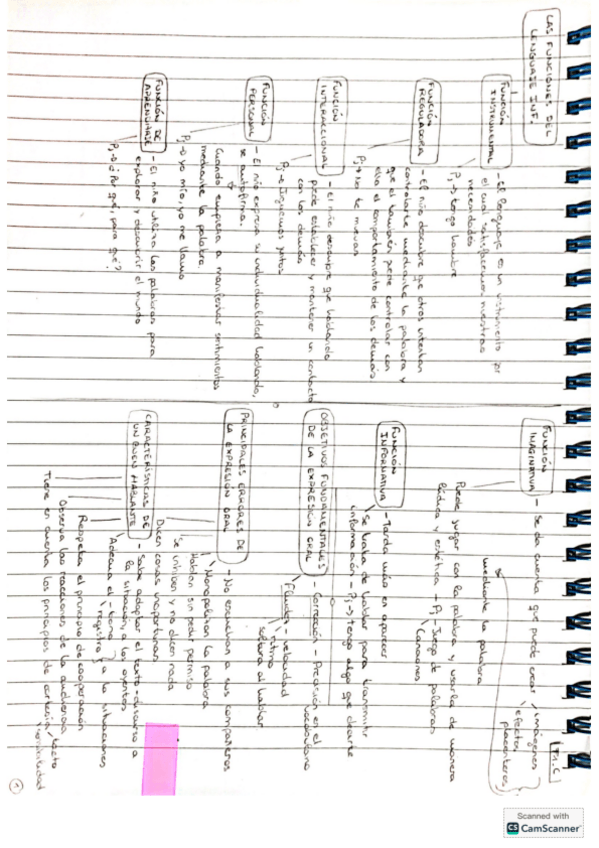 LAS FUNCIONES DEL
LENGUAJE INF.
FUNCIÓN
INSTRUMENTAL
- El lenguaje es un instrumento por
el cual satisfacemos nuestras
necesidades
Pj → tengo hambre
FUNCIÓN
REGULADORA
- El niño descubre que otros intentan
controlarle mediante la palabra y
que él también puede controlar con
ella el comportamiento de los demás
Pj → No te muevas
FUNCIÓN
INTERACCIONAL
- El niño descubre que hablando
puede establecer y mantener un contacto
con los demás
Pj → Juguemos juntos
FUNCIÓN
PERSONAL
- El niño expresa su individualidad hablando,
se autoafirma.
Cuando empieza a manifestar sentimientos
mediante la palabra
Pj → yo mío, yo me llamo
FUNCIÓN DE
APRENDIZAJE
- El niño utiliza las palabras para
explorar y descubrir el mundo
Pj → ¿Por qué, para qué?
FUNCIÓN
IMAGINATIVA
- Se da cuenta que puede crear
imágenes
efectos
placenteros
mediante la palabra
Puede jugar con la palabra y usarla de manera
lúdica y estética - Pj - Juego de palabras
Canciones
FUNCIÓN
INFORMATIVA
- Tarda más en aparecer
Se trata de hablar para transmitir
información - Pj → tengo algo que decirte
OBJETIVOS FUNDAMENTALES
DE LA EXPRESIÓN ORAL
- Corrección - Precisión en el
vocabulario
Fluidez - velocidad
ritmo
soltura al hablar
PRINCIPALES ERRORES DE
LA EXPRESIÓN ORAL
- No escuchan a sus compañeros
Monopolizan la palabra
Hablan sin pedir permiso
Se inhiben y no dicen nada
Dicen cosas inoportunas
CARACTERÍSTICAS DE
UN BUEN HABLANTE
- Sabe adaptar el texto - discurso a
la situación a los oyentes
Adecua el - tono
registro
a la situaciones
Respeta el principio de cooperación
Observa las reacciones de la audiencia
Tiene en cuenta los principios de cortesía
tacto
1
Scanned with
CS CamScanner